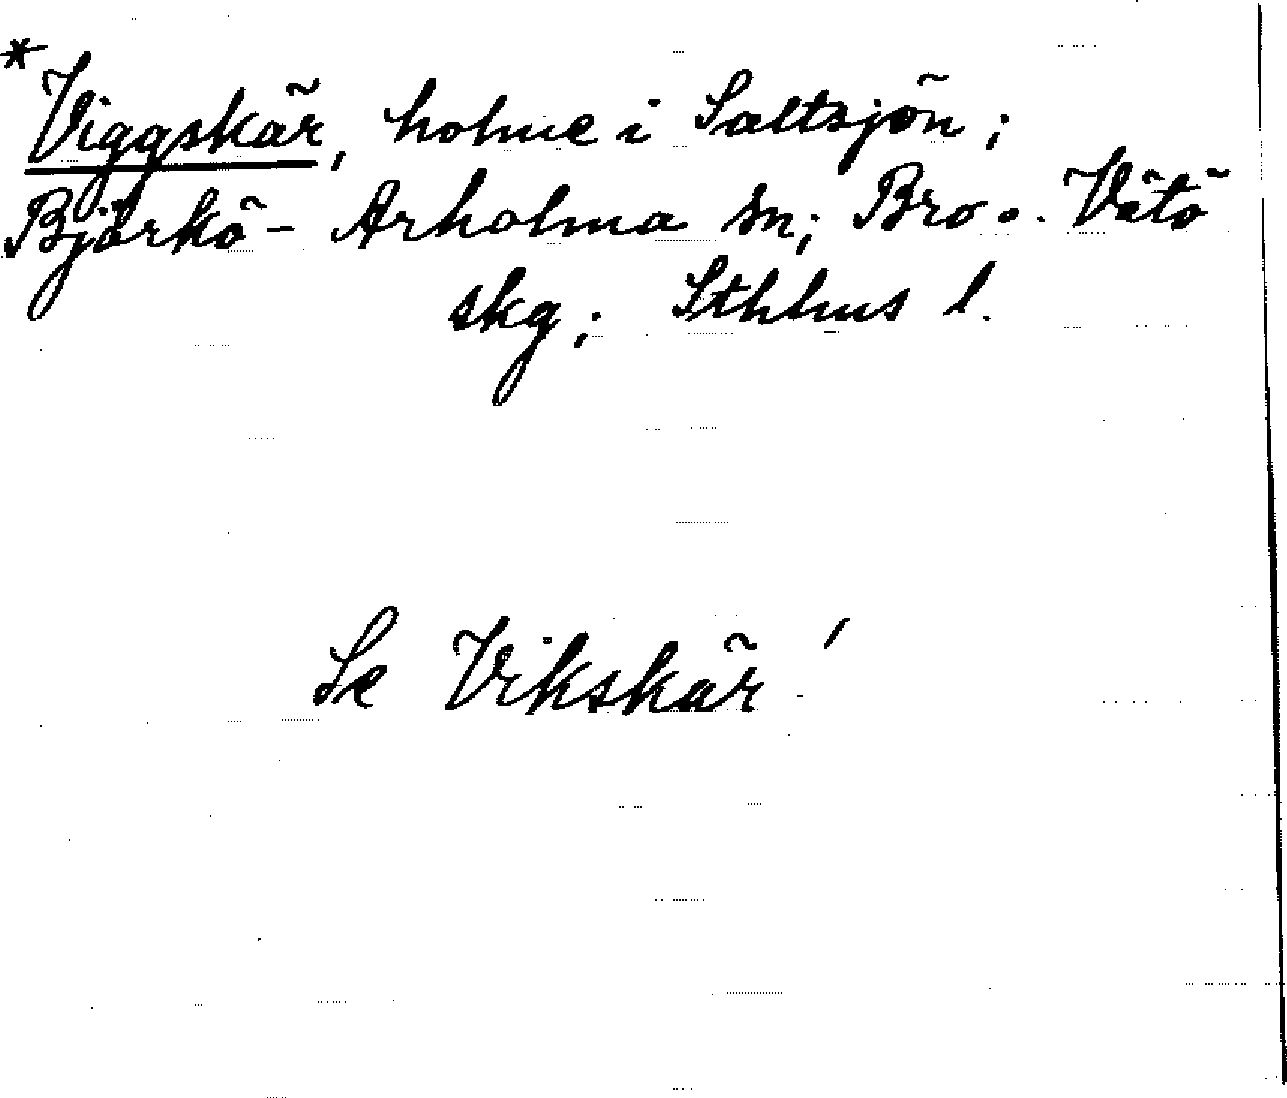 *Viggskär, holme i Saltsjön;
Björkö-Arholma sn; Bro o. Vätö
skg; Sthlms l.
Se Vikskär!